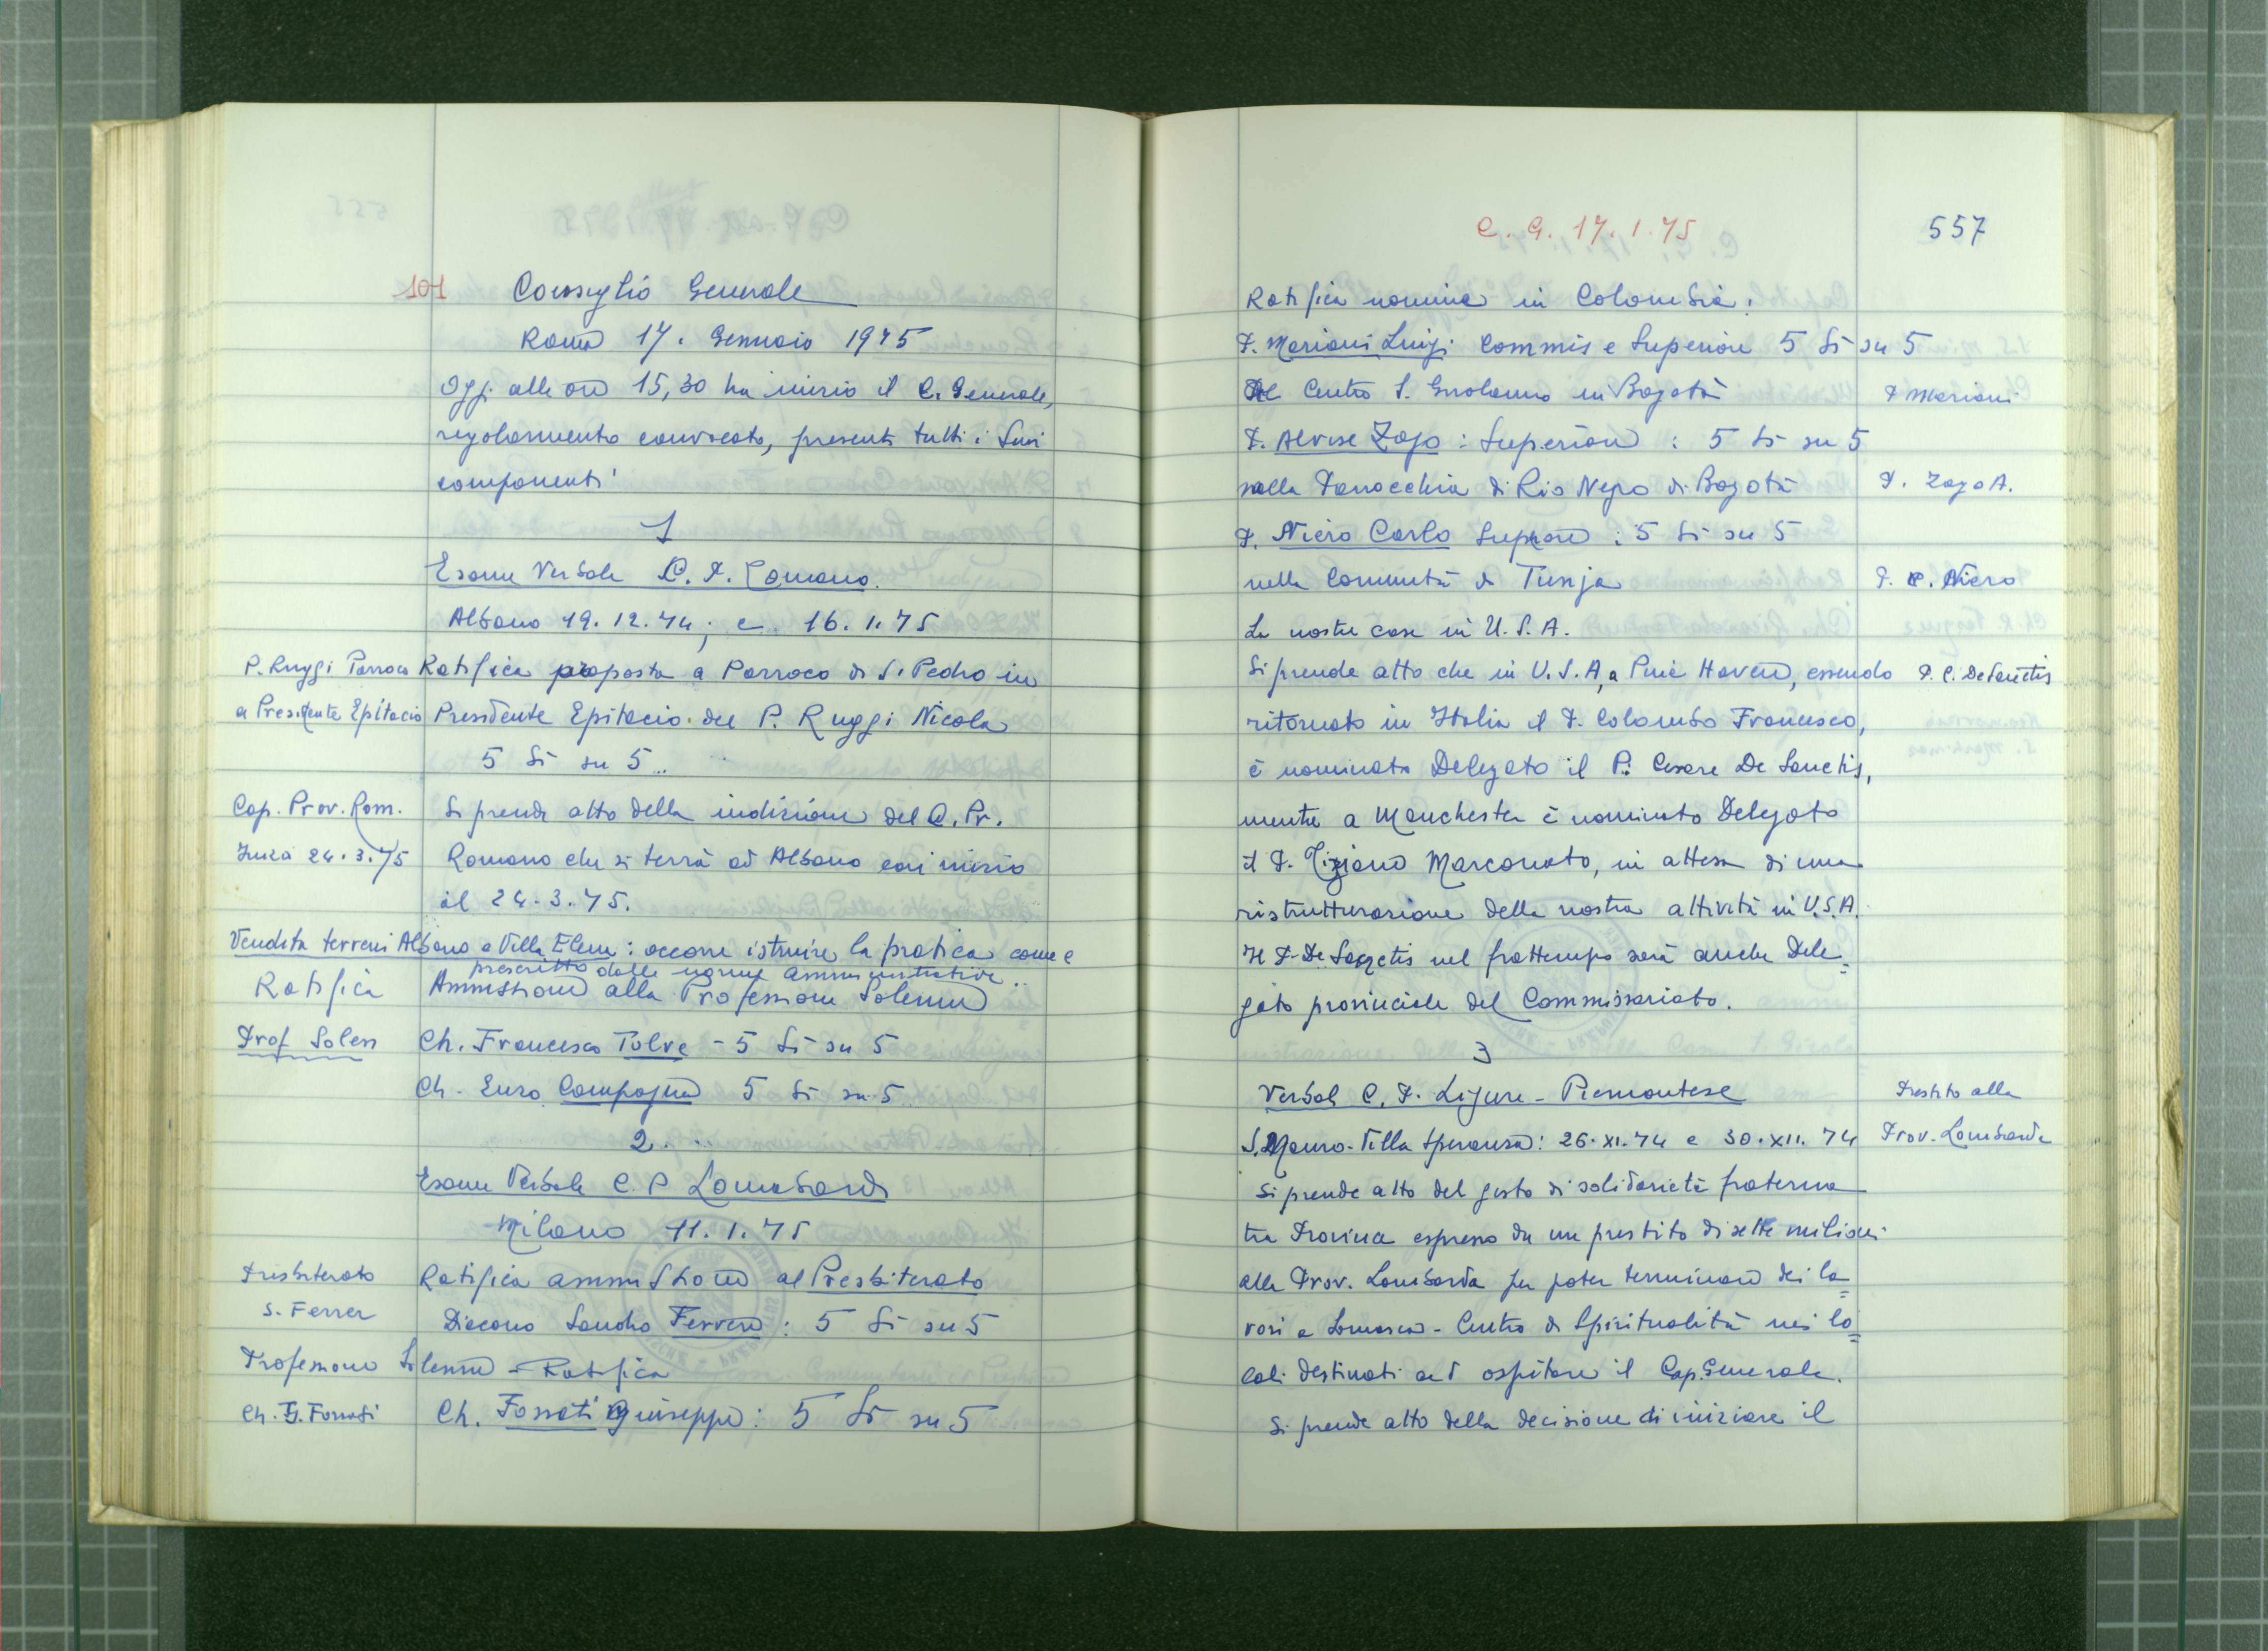 101 Consiglio Generale
Roma 17. Gennaio 1975
Oggi alle ore 15,30 ha inizio il C. Generale,
regolarmente convocato, presenti tutti i suoi
componenti
1
Esame Verbale C. P. Romano.
Albano 19.12.74; e 16.1.75
P. Ruggi Parroco Ratifica proposta a Parroco di S. Pedro in
a Presidente Epitacio Presidente Epitacio del P. Ruggi Nicola
5 Si su 5..
Cap. Prov. Rom. Si prende atto della indizione del C. Pr.
Inizia 24.3.75 Romano che si terrà ad Albano con inizio
il 24.3.75.
Vendita terreni Albano e Villa Elena: occorre istruire la pratica come è
prescritto dalle norme amministrative..
Ratifica Ammissione alla Professione Solenne
Prof Solen Ch. Francesco Tolve - 5 Si su 5
Ch. Euro Compagna 5 Si su 5
2.
Esame Verbale C. P. Lombardo
Milano 11.1.75
Presbiterato Ratifica ammissione al Presbiterato
S. Ferrer Diacono Sandro Ferrero: 5 Si su 5
Professione Solenne - Ratifica
Ch. G. Fossati Ch. Fossati Giuseppe: 5 Si su 5
C. G. 17.1.75 557
Ratifica nomine in Colombia:
P. Mariani Luigi Commis e Superiore 5 Si su 5
Al Centro S. Girolamo in Bogotà P Mariani
P. Alvise Zago: Superiore: 5 Si su 5
nella Parrocchia di Rio Negro di Bogotà P. Zago A.
P. Niero Carlo Superiore: 5 Si su 5
nella Comunità di Tunja P. C. Niero
Le nostre case in U.S.A.
Si prende atto che in U.S.A, a Pine Haven, essendo P. C. De Sanctis
ritornato in Italia il P. Colombo Francesco,
è nominato Delegato il P. Cesare De Sanctis,
mentre a Manchester è nominato Delegato
il P. Tiziano Marconato, in attesa di una
ristrutturazione della nostra attività in U.S.A.
Il P. De Sanctis nel frattempo sarà anche Dele=
gato provinciale del Commissariato.
3
Verbali C. P. Ligure - Piemontese Prestito alla
S. Mauro - Villa Speranza: 26.XI.74 e 30.XII.74 Prov. Lombarda
Si prende atto del gesto di solidarietà fraterna
tra Province espresso da un prestito di sette milioni
alla Prov. Lombarda per poter terminare dei la=
vori a Somasca - Centro di Spiritualità nei lo=
cali destinati ad ospitare il Cap. Generale.
Si prende atto della decisione di iniziare il